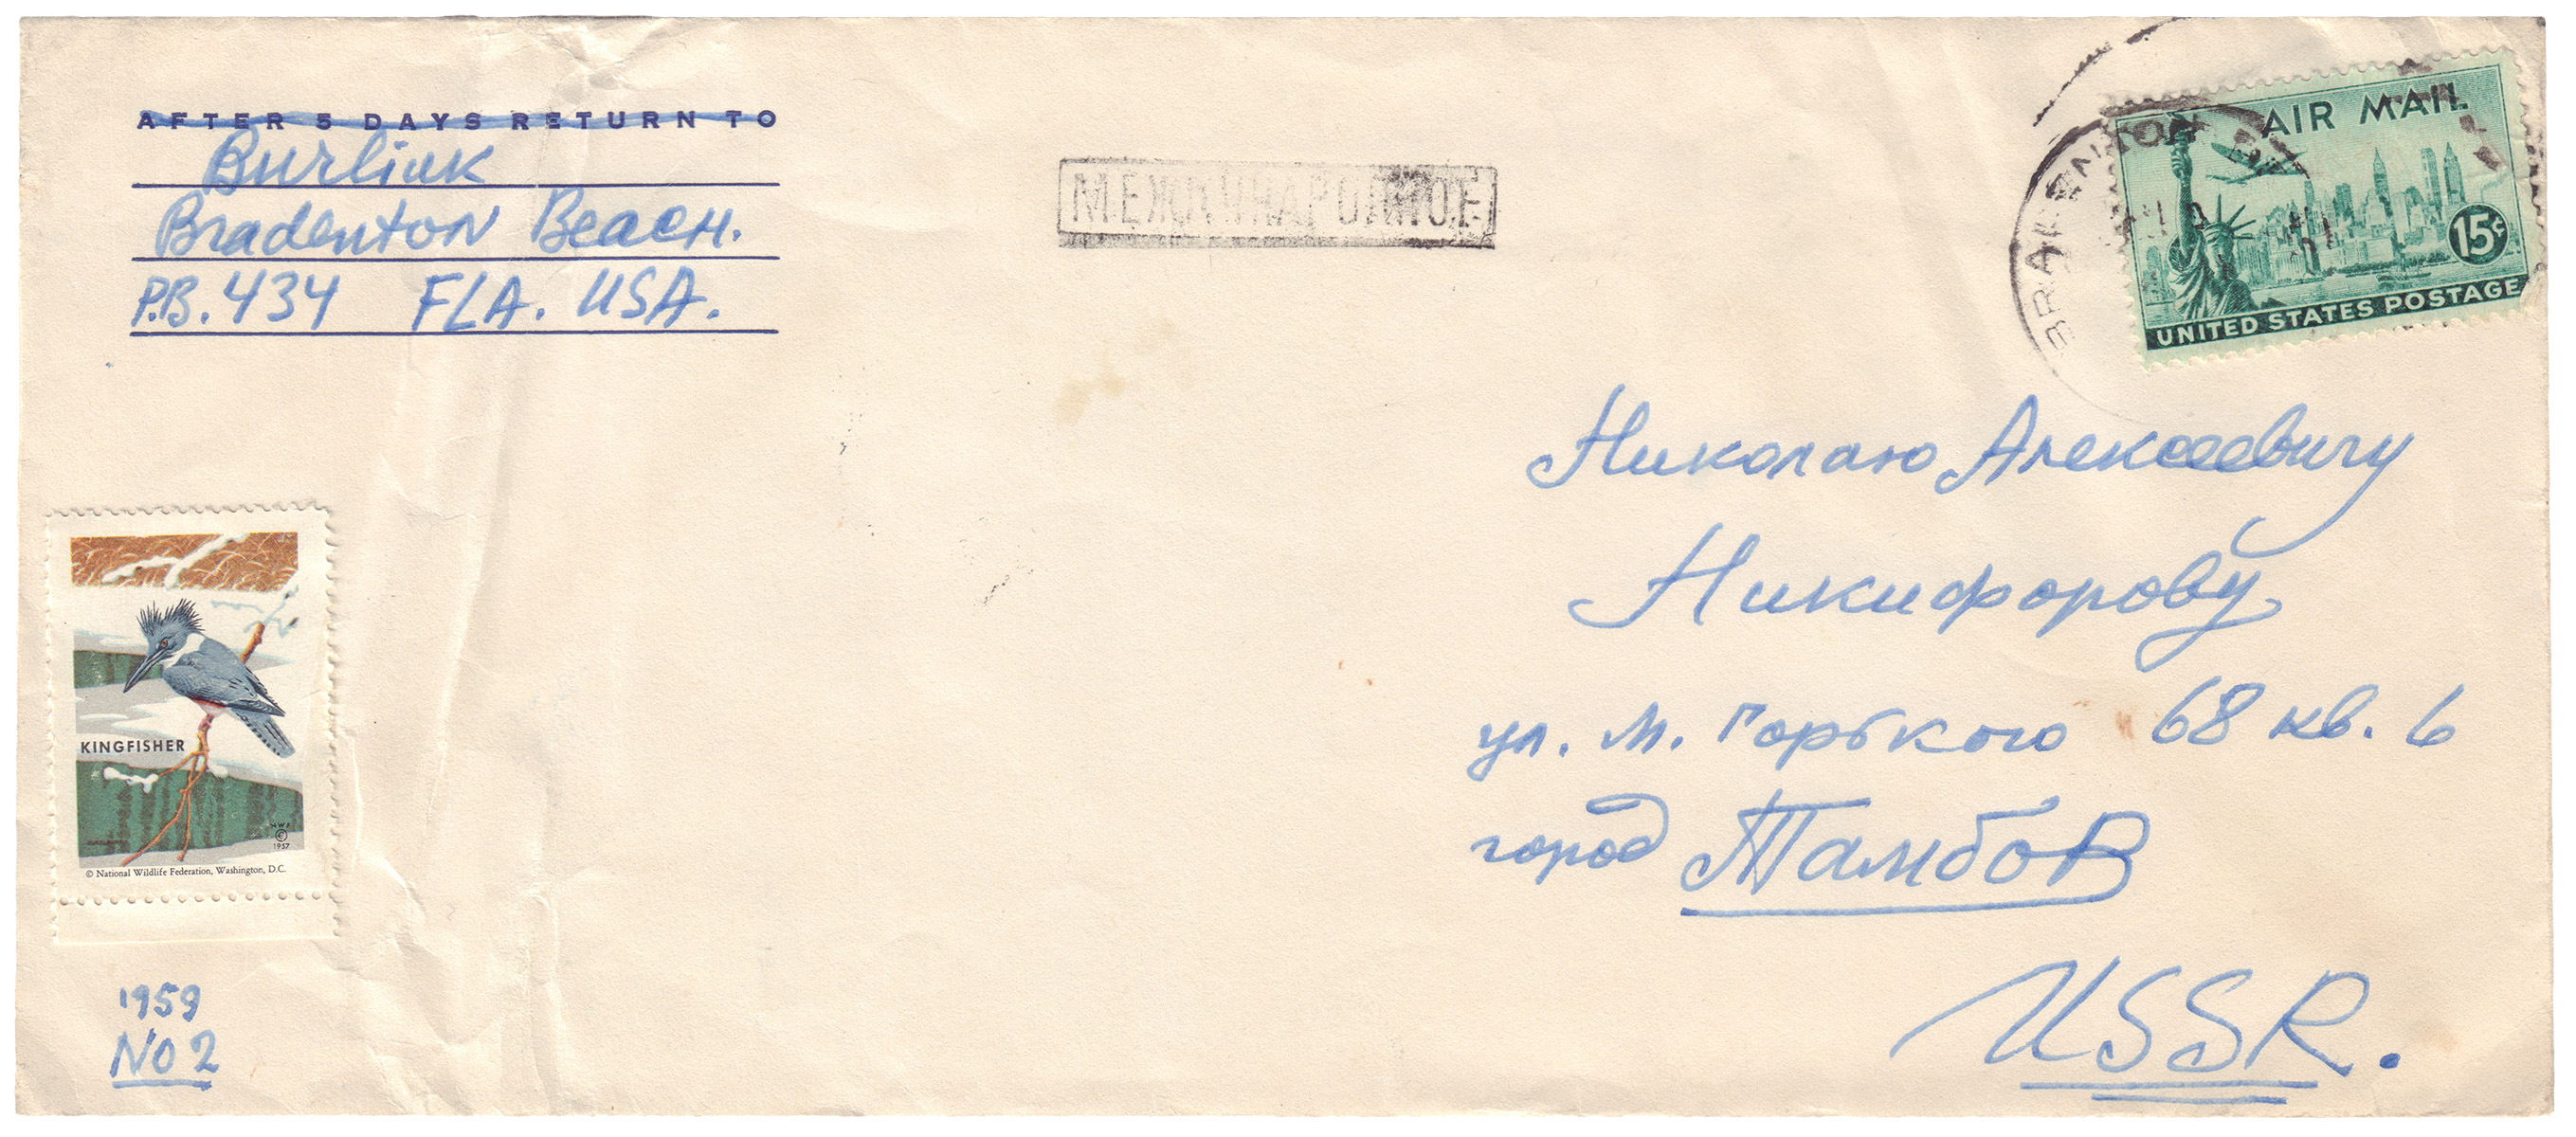 AFTER 5 DAYS RETURN TO
Burliuk
Bradenton Beach.
P.B. 434 FLA. USA.
МЕЖДУНАРОДНОЕ
BRADENTON
AIR MAIL
15¢
UNITED STATES POSTAGE
Николаю Алексеевичу
Никифорову
ул. М. Горького 68 кв. 6
город Тамбов
USSR.
KINGFISHER
NWF
©
1957
© National Wildlife Federation, Washington, D.C.
1959
No 2